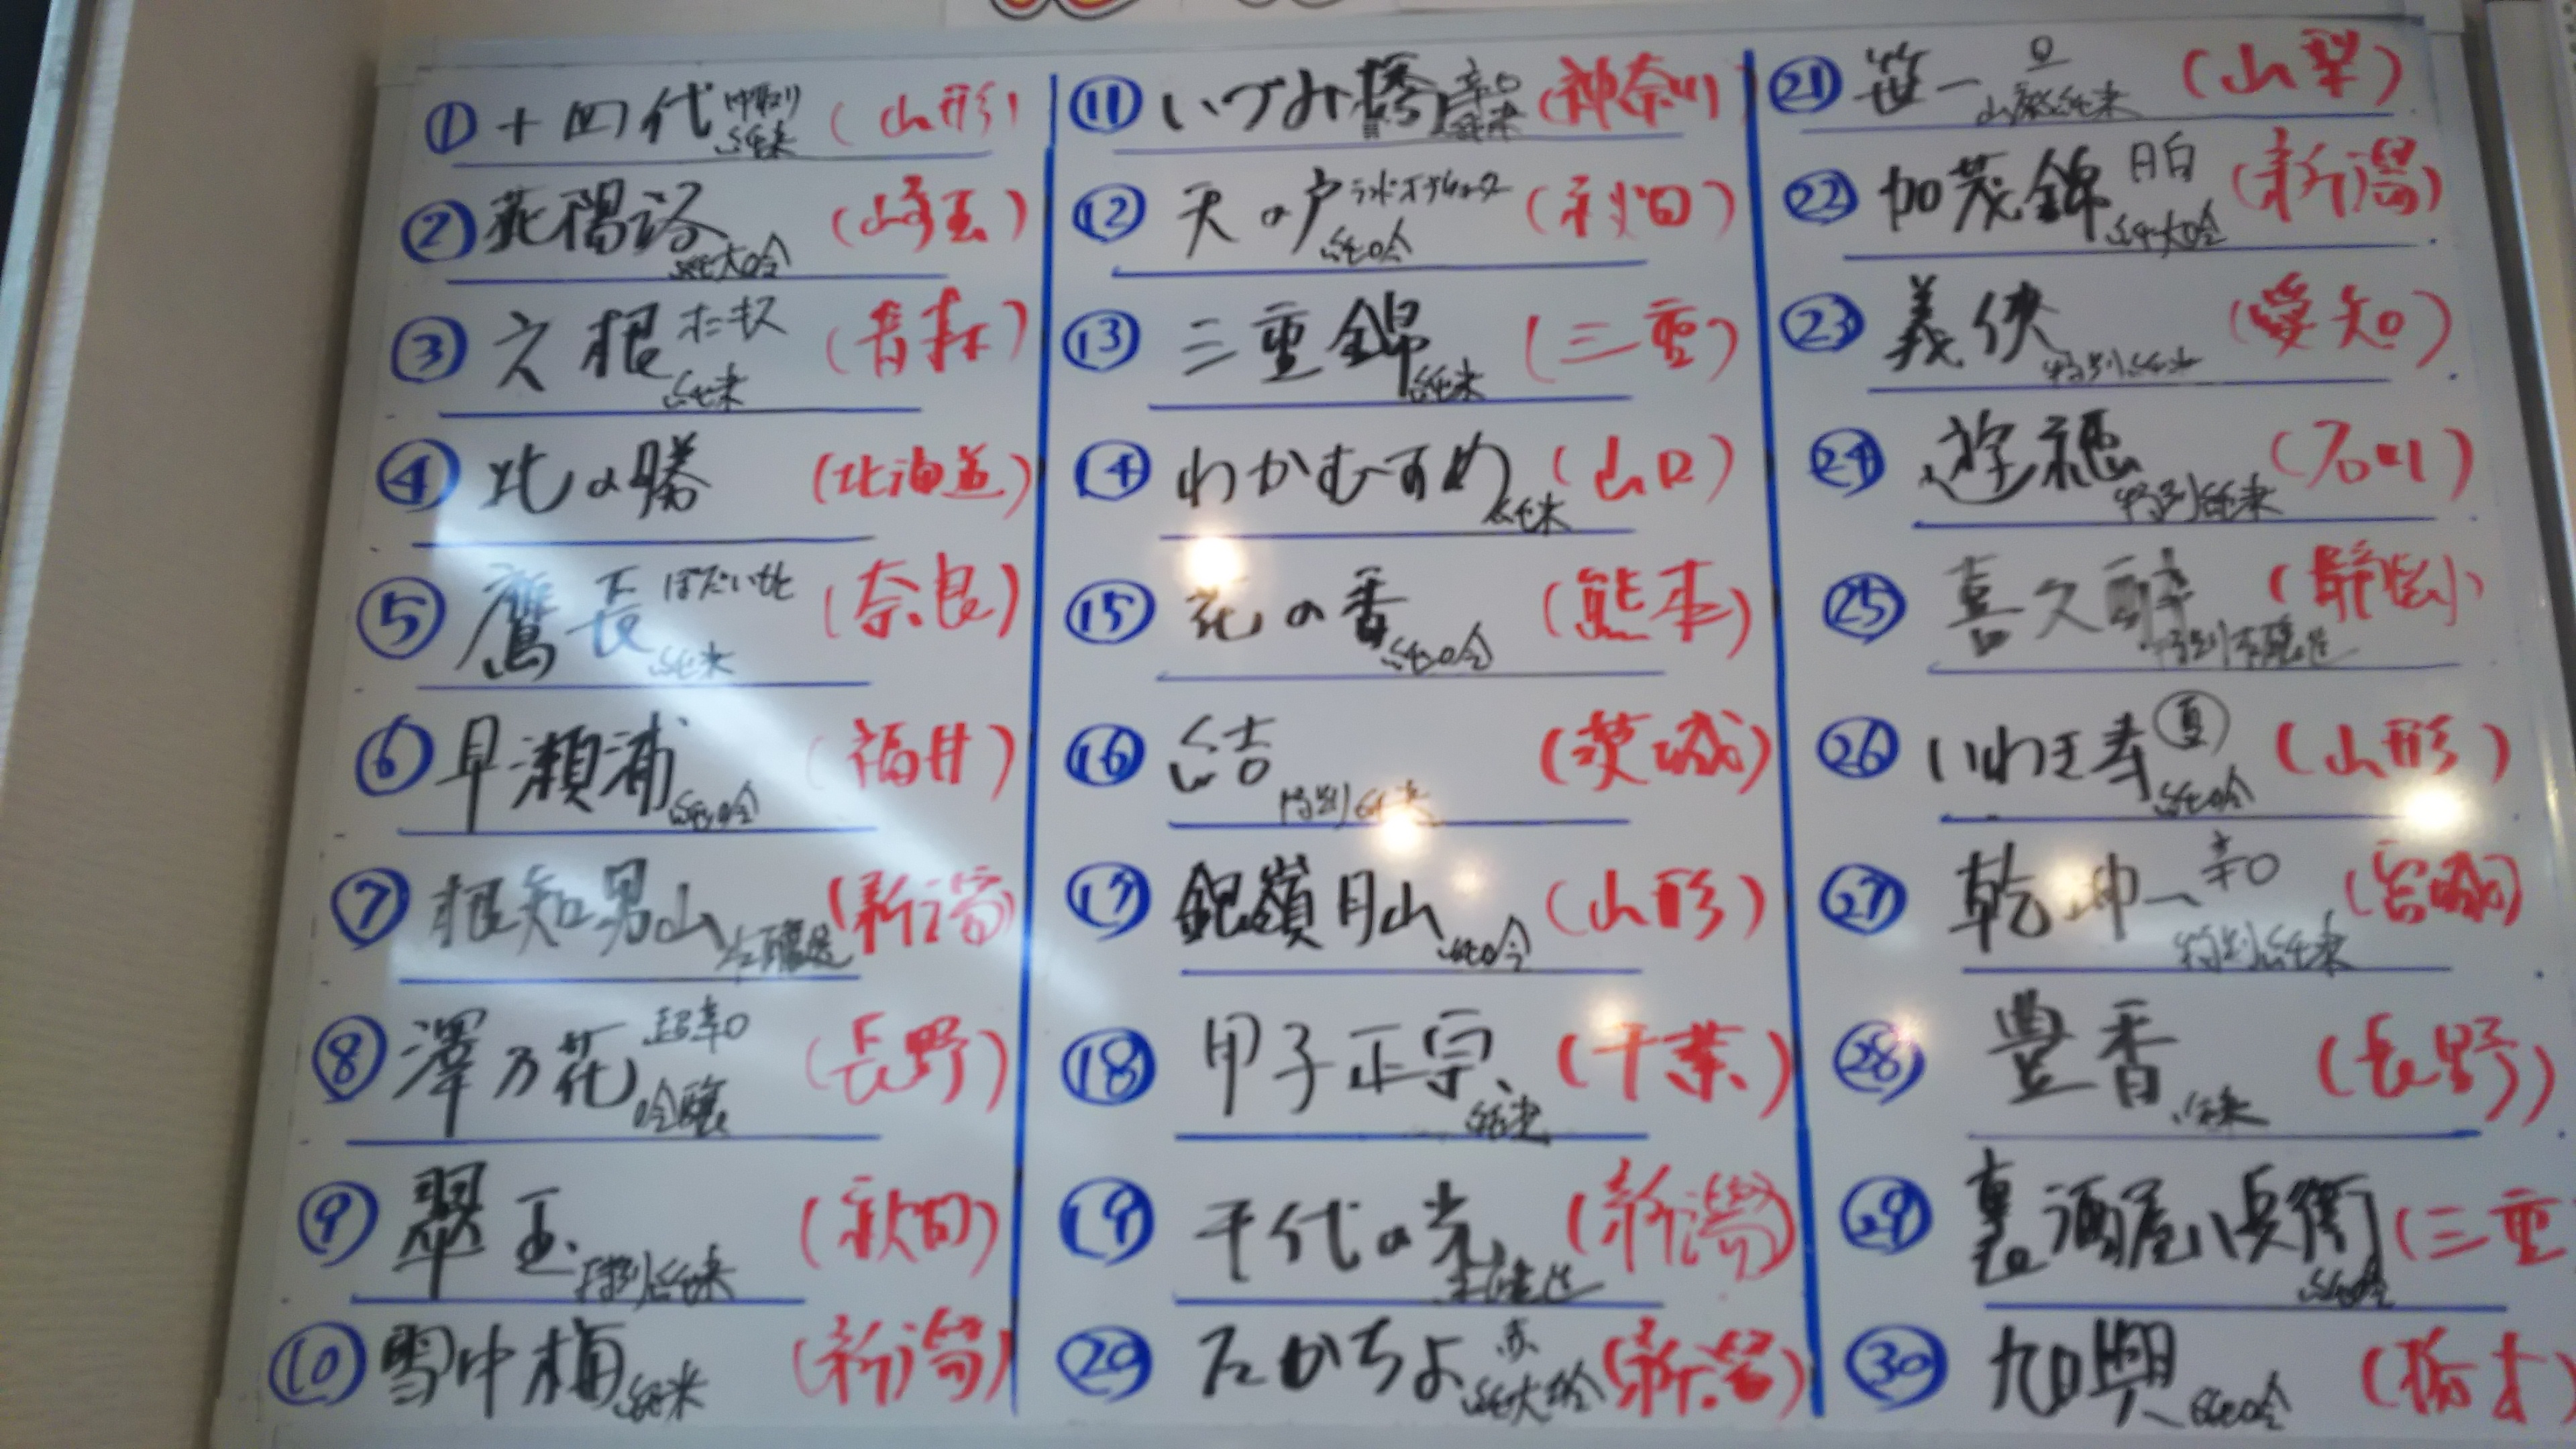 ① 十四代 中取り 純米 (山形)
② 花陽浴 純大吟 (埼玉)
③ 六根 オニキス 純米 (青森)
④ 北の勝 (北海道)
⑤ 鷹長 ぼだいもと 純米 (奈良)
⑥ 早瀬浦 純吟 (福井)
⑦ 根知男山 本醸造 (新潟)
⑧ 澤乃花 超辛口 吟醸 (長野)
⑨ 翠玉 特別純米 (秋田)
⑩ 雪中梅 純米 (新潟)
⑪ いづみ橋 辛口 純米 (神奈川)
⑫ 天の戸 ランドオブウォーター 純吟 (秋田)
⑬ 三重錦 純米 (三重)
⑭ わかむすめ 純米 (山口)
⑮ 花の香 純吟 (熊本)
⑯ 結 特別純米 (茨城)
⑰ 銀嶺月山 純吟 (山形)
⑱ 甲子正宗 純米 (千葉)
⑲ 千代の光 本醸造 (新潟)
⑳ たかちよ 赤 純大吟 (新潟)
㉑ 笹一 旦 山廃純米 (山梨)
㉒ 加茂錦 月白 純大吟 (新潟)
㉓ 義侠 特別純米 (愛知)
㉔ 遊穂 特別純米 (石川)
㉕ 喜久醉 特別本醸造 (静岡)
㉖ いわき寿 夏 純吟 (山形)
㉗ 乾坤一 辛口 特別純米 (宮城)
㉘ 豊香 純米 (長野)
㉙ 裏酒屋八兵衛 純吟 (三重
㉚ 旭興 純吟 (栃木)